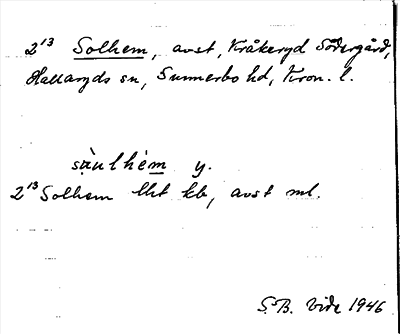 2¹³ Solhem, avst, Kråkeryd Södergård,
Hallaryds sn, Sunnerbo hd, Kron. l.
sὰulhèm y.
2¹³ Solhem Urt kb, avst ml.
S.B. Vide 1946